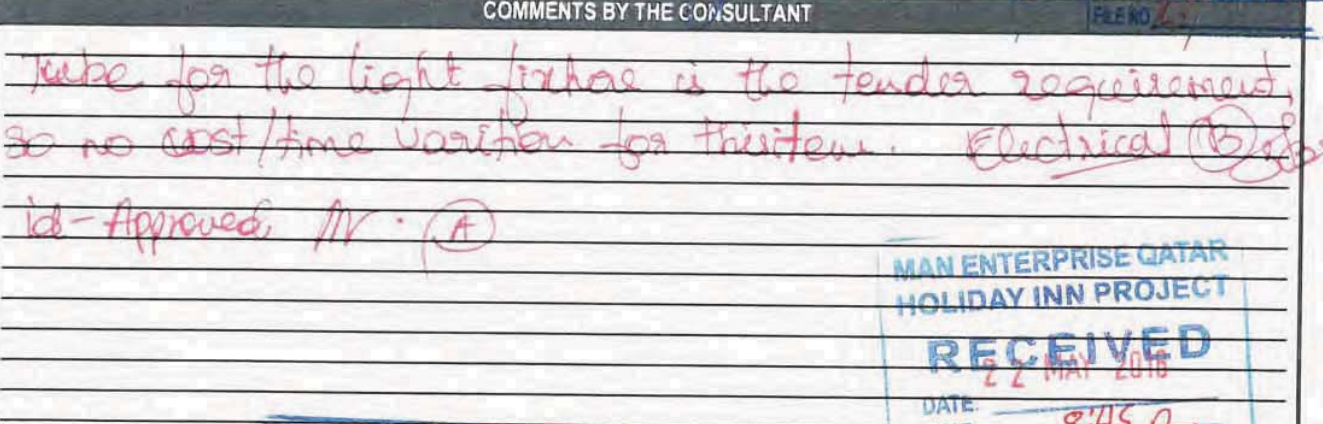 COMMENTS BY THE CONSULTANT
FILE NO
Tube for the light fixture is the tender requirement,
so no cost/time varition for thisitem. Electrical (B)
id-Approved, (A)
MAN ENTERPRISE QATAR
HOLIDAY INN PROJECT
RECEIVED
22 MAY 2016
DATE: